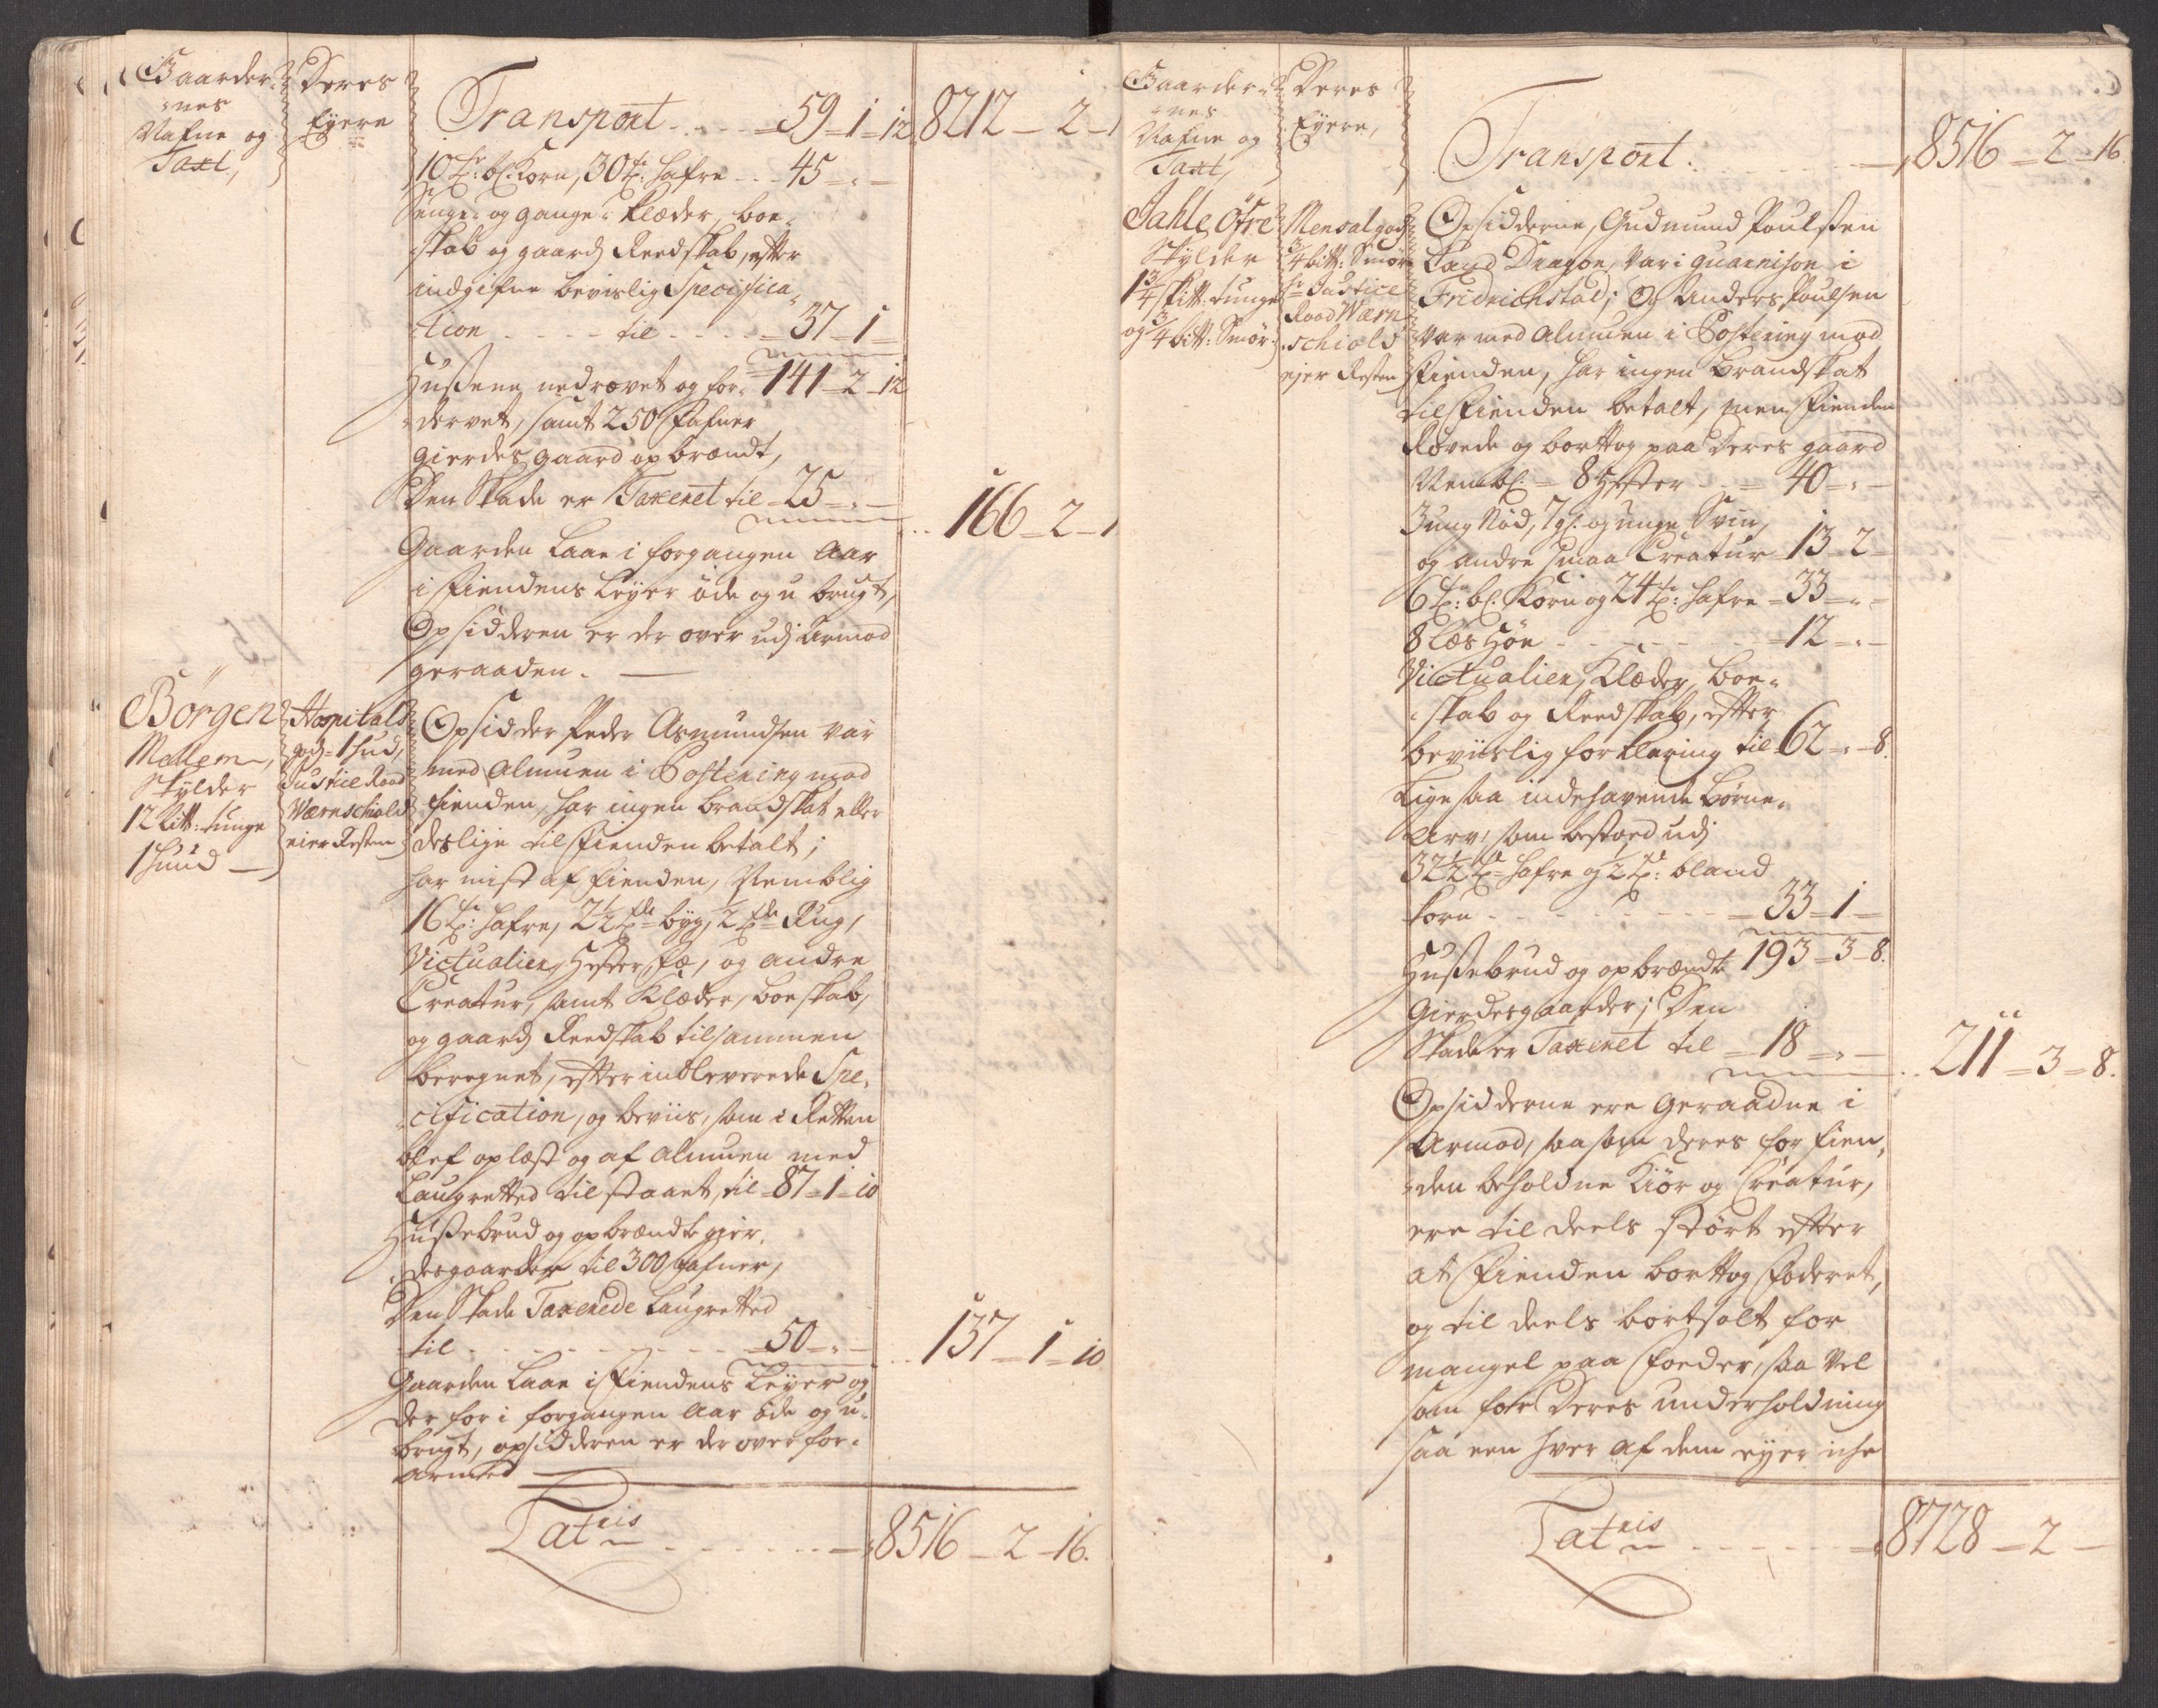 Gaarder-
nes
Nafne og
Taxt,
Deres
Eyere
Transport - - - 59 - 1 - 12
8212 - 2 -
10 t: bl: Korn, 30 t: hafre - - 45 - " -
Senge- og gange- Klæder, boe-
skab og gaards Reedskab, efter
indgifne bevislig Specifica-
tion - - - - til - - - - 37 - 1 -
141 - 2 - 12
Hussene nedrævet og for-
dervet, samt 250 fafner
gierdes gaard opbrændt,
Den Skade er Taxeret til - 25 - " -
166 - 2 -
Gaarden Laae i forgangen Aar
i Fiendens Leyer öde og u brugt,
Opsidderen er der over udj Armod
geraaden. —
Börgen
Mellem,
Skylder
12 Litt: tunge
1 huud —
Hospitals
gods - 1 hud,
Justice Raad
Wærnschiold
eier Resten
Opsidder Peder Asmundsen var
med Almuen i Postering mod
fienden, har ingen brandskat eller
deslige til Fienden betalt;
har mist af fienden, Nemblig
16 t: hafre, 2½ tde byg, 2 tde Rug,
Victualier, Hester, Fæ, og andre
Creatur, samt Klæder, boeskab,
og gaards Reedskab tilsammen
beregnet, efter indleverede Spe-
cification, og beviis, som i Retten
blef oplæst og af Almuen med
Laugretted til staaet, til - 87 - 1 - 10
Hussebrud og opbrændte gier-
desgaarder til 300 fafner,
Den Skade Taxerede Laugretted
til - - - - - - - - 50 - " -
137 - 1 - 10
Gaarden Laae i Fiendens Leyer og
der for i forgangen Aar öde og u-
brugt, opsidderen er der over for-
armed —
Lateris - - - - - 8516 - 2 - 16.
Gaarder-
nes
Nafne og
Taxt,
Deres
Eyere,
Transport. - - - - - 8516 - 2 - 16.
Jahle öfre
Skylder
1¾ skitt: tunge
og ¾ bitt: Smör
Mensal gods
¾ bitt: Smör
hr Justice
Raad Wærn
schiold
ejer Resten
Opsidderne, Gudmund Poulssen
Land Dragon, var i guarnison i
Fridrichstad; Og Anders Poulsen
var med Almuen i Postering mod
Fienden, har ingen brandskat
til Fienden betalt, men fienden
Røvede og borttog paa Deres gaard
Nembl: - 8 Hester - - 40 - " -
3 ung Nöd, 7 gl: og unge Svin,
og andre smaa Creatur 13 - 2 -
6 t: bl: Korn og 24 t: hafre - 33 - " -
8 Læs Höe - - - - - 12 - " -
Victualier, Klæder, boe-
skab og Reedskab, efter
beviislig forklaring til 62 - " - 8.
Ligesaa indehavende börne-
Arv, som bestoed udj
32½ t: hafre og ½ t: bland
korn - - - - - - - 33 - 1 -
193 - 3 - 8.
Hussebrud og opbrændte
gierdesgaarder; Den
Skade er Taxeret til - 18 - " -
211 - 3 - 8.
Opsidderne ere geraadne i
Armod, saasom deres for fien-
den beholdne Kiör og Creatur,
ere til deels stört efter
at Fienden borttog foderet,
og til deels bortsolt for
mangel paa foeder, saa vel
som for Deres underholdning
saa een hver af dem eyer iche
Lateris - - - - - 8728 - 2 -